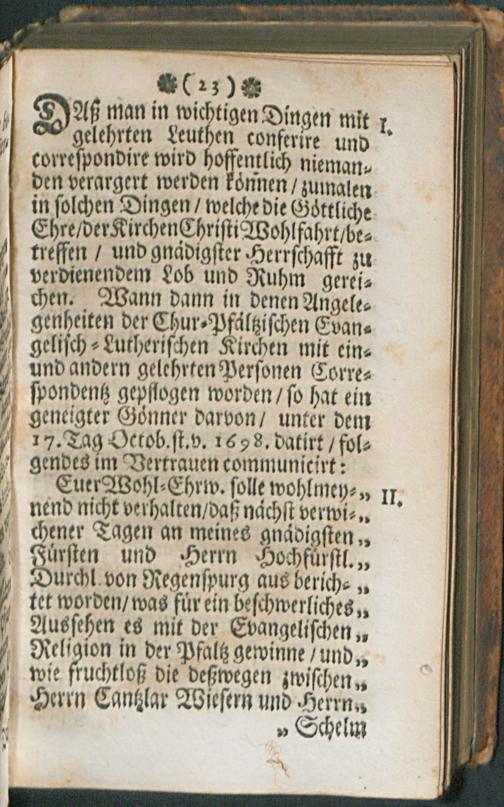 ❋ ( 23 ) ❋
DAß man in wichtigen Dingen mit I.
gelehrten Leuthen conferire und
correspondire wird hoffentlich nieman-
den verargert werden köñen / zumalen
in solchen Dingen / welche die Göttliche
Ehre/der Kirchen Christi Wohlfahrt/be-
treffen / und gnädigster Herrschafft zu
verdienendem Lob und Ruhm gerei-
chen. Wann dann in denen Angele-
genheiten der Chur-Pfältzischen Evan-
gelisch-Lutherischen Kirchen mit ein-
und andern gelehrten Personen Corre-
spondentz gepflogen worden / so hat ein
geneigter Gönner darvon / unter dem
17. Tag Octob. st. v. 1698. datirt / fol-
gendes im Vertrauen communicirt:
Euer Wohl-Ehrw. solle wohlmey-„ II.
nend nicht verhalten/daß nächst verwi-„
chener Tagen an meines gnädigsten „
Fürsten und Herrn Hochfürstl. „
Durchl. von Regenspurg aus berich-„
tet worden/ was für ein beschwerliches „
Aussehen es mit der Evangelischen „
Religion in der Pfaltz gewinne / und „
wie fruchtloß die deßwegen zwischen „
Herrn Cantzlar Wiesern und Herrn „
„ Schelm